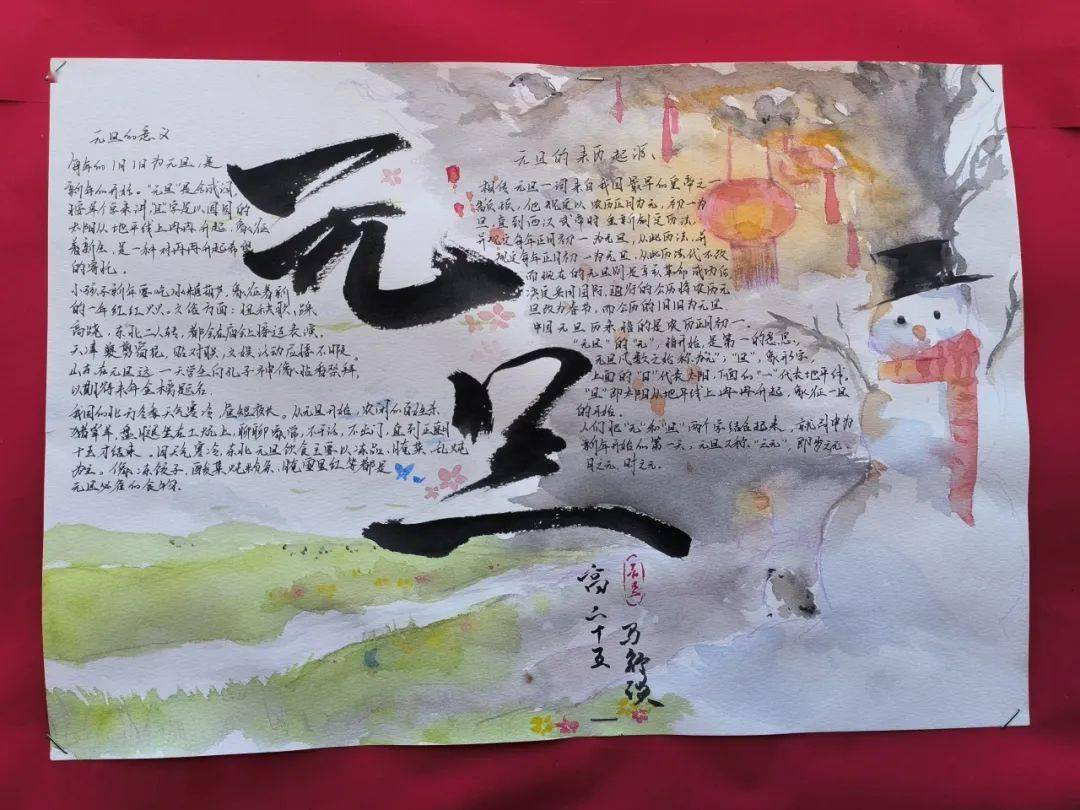 元旦的意义
每年的1月1日为元旦，是
新年的开始。"元旦"是合成词，
按单个字来讲，旦字是以圆圆的
太阳从地平线上冉冉升起，象征
着新生，是一种对冉冉升起希望
的寄托。
小孩子新年要吃冰糖葫芦，象征着新
的一年红红火火。文俗方面：扭秧歌，踩
高跷，东北二人转，都会在庙会上接连表演，
天津 剪窗花，贴对联，文娱活动应接不暇。
山东在元旦这一天学生向孔子神像 香祭拜，
以期待来年金榜题名。
我国的北方冬季天气寒冷，昼短夜长。从元旦开始，农闲的百姓杀
猪宰羊，盘腿坐在土炕上，聊聊家常，不干活，不出门，直到正月
十五才结束。因天气寒冷，东北元旦饮食主要以冻品，腌菜，乱炖
为主。像冻饺子，酸菜 粉条，腌 等都是
元旦必备的食物。
元
旦
元旦的来历起源、
相传元旦一词来自我国最早的皇帝之一
颛顼，他规定以农历正月为元，初一为
旦，直到西汉武帝时重新制定历法，
并规定每年正月初一为元旦，从此历法，并
规定每年正月初一为元旦，从此历法代代不改
而现在的元旦则是辛亥革命成功后
决定与国际 的公历将农历元
旦改为春节，而公历的1月1日为元旦
中国元旦历来指的是农历正月初一。
"元旦"的"元"，指开始，是第一的意思，
元旦凡数之始称为"元"；"旦"，象形字，
上面的"日"代表太阳，下面的"一"代表地平线。
"旦"即太阳从地平线上冉冉升起，象征一日
的开始。
人们把"元"和"旦"两个字结合起来，就引申为
新年开始的第一天；元旦又称"三元"，即岁之元
月之元 时之元
元旦
高二十五
马